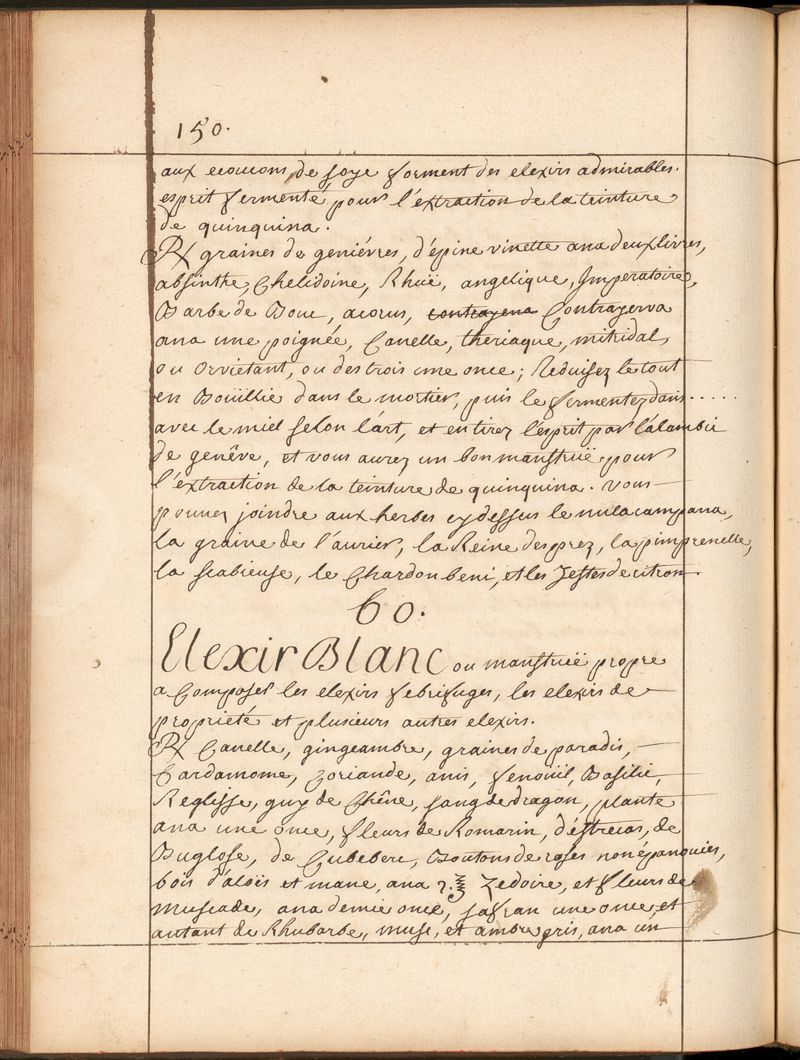 150.
aux cocons de soye forment des elexirs admirables.
esprit fermenté pour l'extraction de la teinture
de quinquina.
℞ graines de geniévres, d'épine vinette ana deux livres,
absinthe, Chelidoine, Rhuë, angelique, Imperatoire,
Barbe de Bouc, acorus, contrayena Contrayerva
ana une poignée, Canelle, theriaque, mitridal,
ou orvietant, ou des trois une once; Reduisez le tout
en Boüillie dans le mortier, puis le fermentez dans .....
avec le miel selon l'art, et en tirez l'esprit par l'alambic
de genêve, et vous aurez un bon manstruë, pour
l'extraction de la teinture de quinquina. Vous
pouvez joindre aux herbes cy dessus le nulacampana,
la graine de l'aurier, la Reine des prez, la pimprenelle,
la scabieuse, le Chardon beni, et les Zestes de citron
60.
Elexir Blanc ou manstruë propre
a Composer les elexirs febrifuges, les elexirs de
proprieté et plusieurs autres elexirs.
℞ Canelle, gingeambre, graines de paradis,
Cardamome, Coriande, anis, fenoüil, Basilic,
Reglisse, guy de Chêne, sang de dragon, plante
ana une once, fleurs de Romarin, de
Buglose, de Cubebere, Boutons de roses non épanouies,
bois d'aloës et mane, ana Zedoire, et fleurs de
muscade, ana demie once, safran une once et
autant de Rhubarbe, musc, et ambre gris, ana un